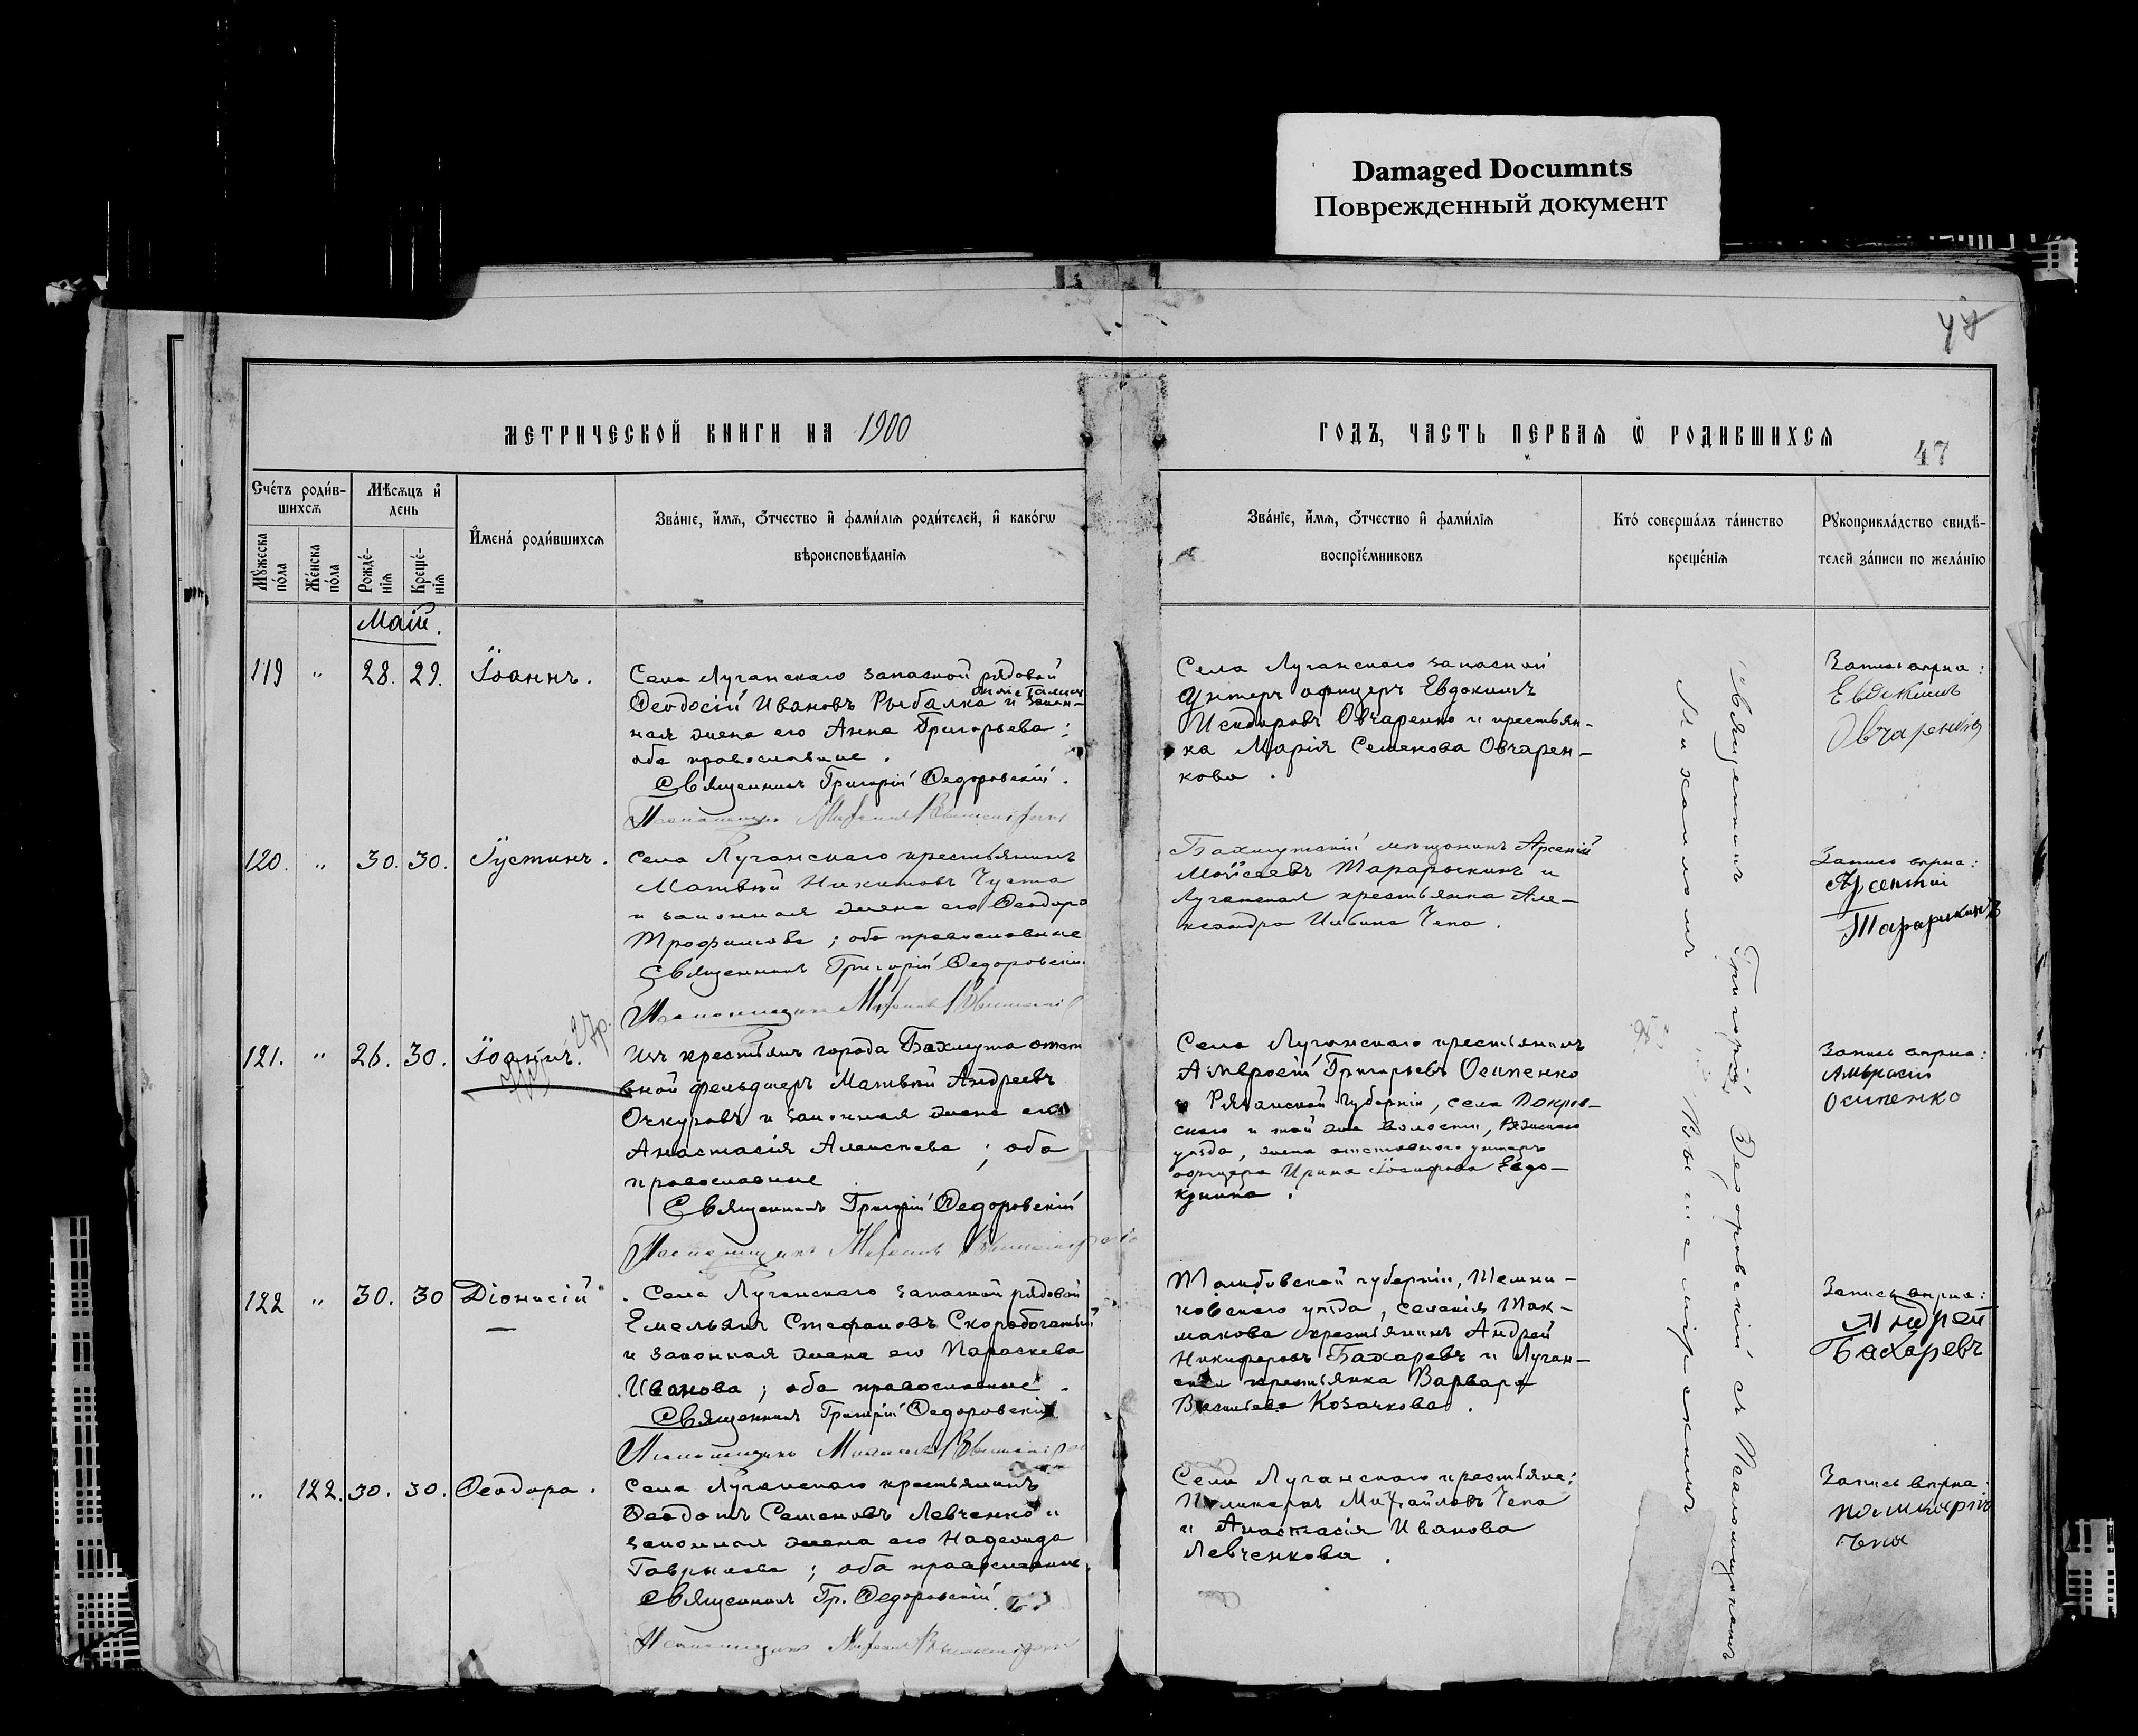 Damaged Documnts
Поврежденный документ
47
МЕТРИЧЕСКОЙ КНИГИ НА 1900
ГОДЪ, ЧАСТЬ ПЕРВАЯ Ѡ РОДИВШИХСЯ
47
Счетъ родив-
шихся
Мужеска пола
Женска пола
Мѣсяцъ и день
Рожде-
нія
Креще-
нія
Имена родившихся
Званіе, имя, отчество и фамилія родителей, и какогѡ
вѣроисповѣданія
Званіе, имя, отчество и фамилія
воспріемниковъ
Кто совершалъ таинство
крещенія
Рукоприкладство свидѣ-
телей записи по желанію
Май.
119 " 28. 29. Іоаннъ.
Села Луганскаго запасной рядовой
Ѳеодосій Ивановъ Рыбалка и закон-
ная жена его Анна Григорьева;
оба православные.
Священникъ Григорій Ѳедоровскій.
Псаломщикъ
Села Луганскаго запасный
Унтеръ офицеръ Евдокимъ
Исидоровъ Овчаренко и крестьян-
ка Марія Семенова Овчарен-
кова.
Запись вѣрна:
Евдокимъ
Овчаренко
120. " 30. 30. Іустинъ.
Села Луганскаго крестьянинъ
Матвѣй Никитовъ Чуета
и законная жена его Ѳеодора
Трофимова; оба православные
Священникъ Григорій Ѳедоровскій.
Псаломщикъ
Бахмутскій мѣщанинъ Арсеній
Мойсеевъ Тарарыкинъ и
Луганская крестьянка Але-
ксандра Ильина Чепа.
Запись вѣрна:
Арсентій
Тарарыкинъ
121. " 26. 30. Іоаннъ.
Изъ крестьянъ города Бахмута отста
вной фельдшеръ Матвѣй Андреевъ
Очкуровъ и законная жена его
Анастасія Алексѣева; оба
православные
Священникъ Григорій Ѳедоровскій
Псаломщикъ
Села Луганскаго крестьянинъ
Амвросій Григорьевъ Осипенко
и Рязанской губерніи, села Покров-
скаго и той же волости, Ряжскаго
уѣзда, жена отставного унтеръ
офицера Ирина Іосифова Евдо-
кунина.
Запись вѣрна:
Амвросій
Осипенко
122 " 30. 30 Діонисій
Села Луганскаго запасной рядовой
Емельянъ Стефановъ Скоробогатый
и законная жена его Параскева
Иванова; оба православные.
Священникъ Григорій Ѳедоровскій
Псаломщикъ
Тамбовской губерніи, Темни-
ковскаго уѣзда, селенія Ток-
макова крестьянинъ Андрей
Никифоровъ Бахаревъ и Луган-
ская крестьянка Варвара
Васильева Козачкова.
Запись вѣрна:
Андрей
Бахаревъ
" 122. 30. 30. Ѳеодора.
Села Луганскаго крестьянинъ
Ѳеодотъ Семеновъ Левченко и
законная жена его Надежда
Гаврилова; оба православные.
Священникъ Гр. Ѳедоровскій.
Псаломщикъ
Села Луганскаго крестьяне:
Поликарпъ Михайловъ Чепа
и Анастасія Иванова
Левченкова.
Запись вѣрна:
Поликарпъ
Чепа
Священникъ Григорій Ѳедоровскій съ Псаломщикомъ
Михаиломъ Вышемірскимъ